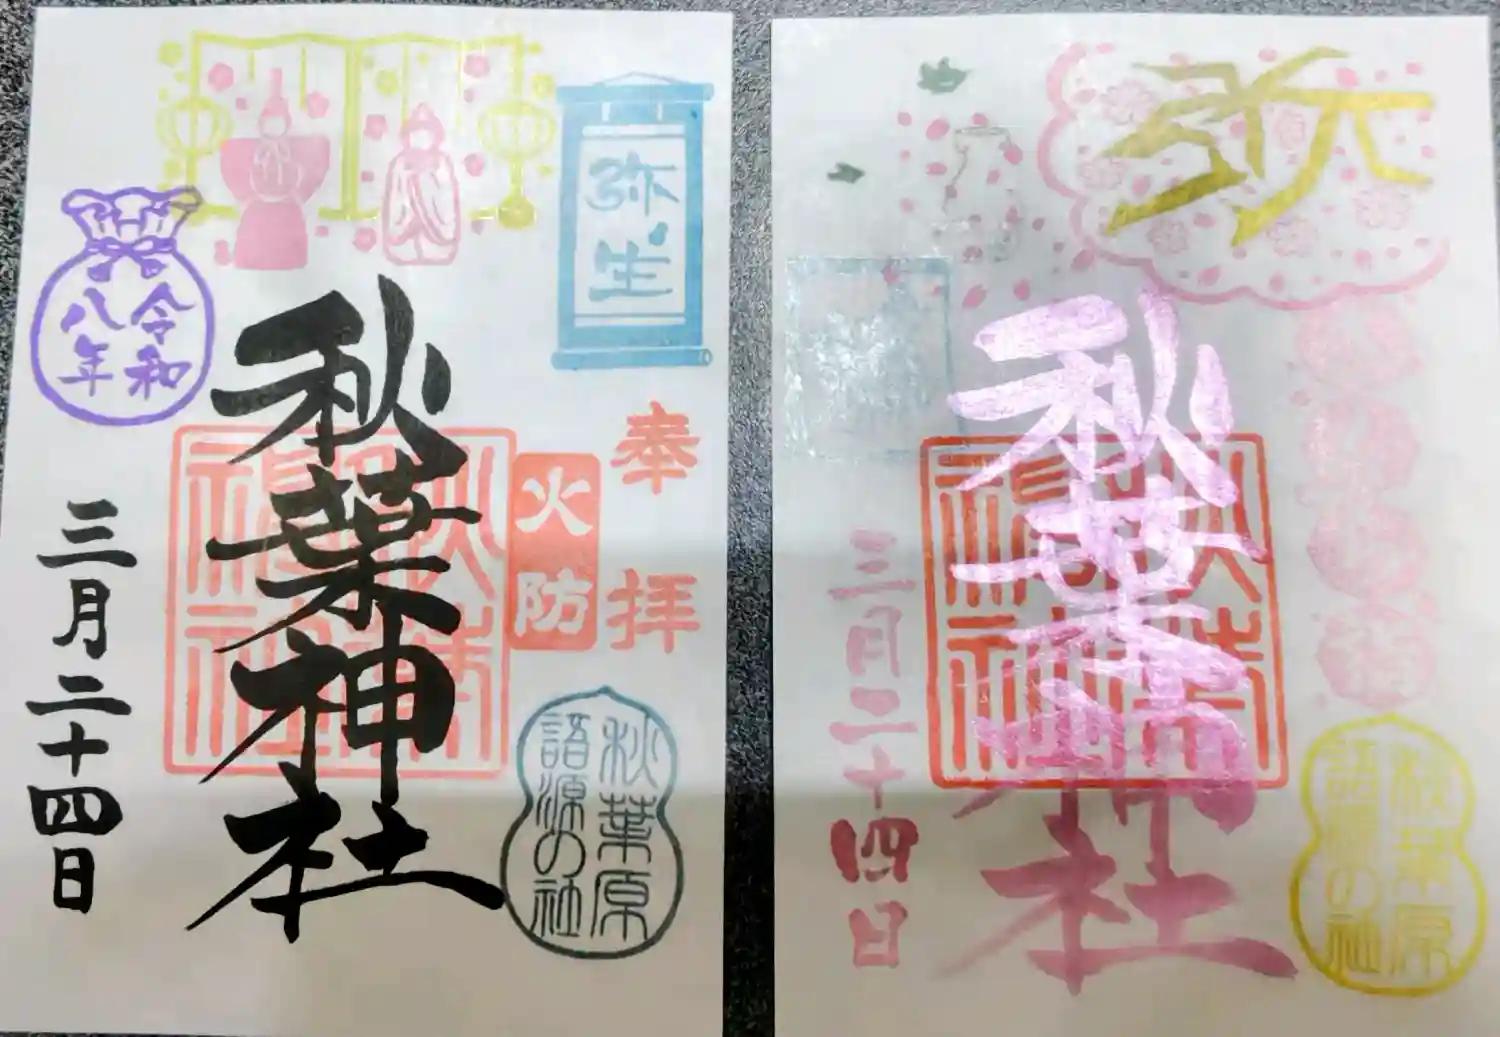 弥生
奉拝
火防
秋葉原
語源の社
秋葉神社
令和
八年
三月二十四日
弥
秋葉原
語源の社
秋葉神社
三月二十四日